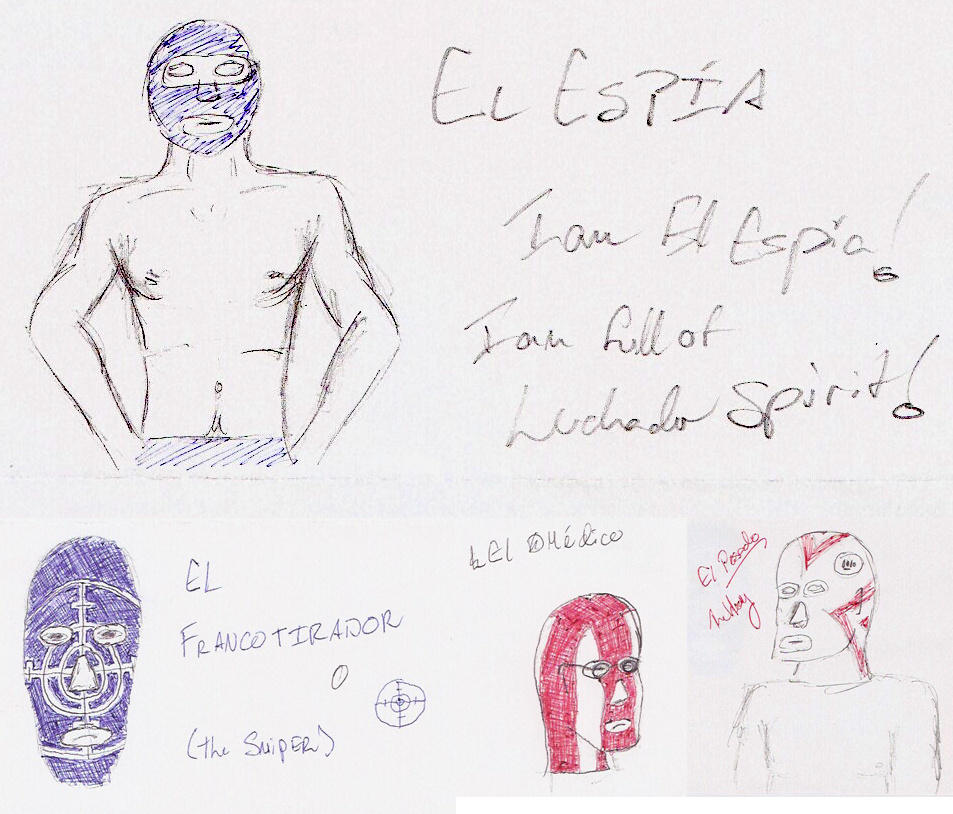 EL ESPÍA
I am El Espía!
I am full of
Luchador Spirit!
EL
FRANCOTIRADOR
(the SNIPER)
El Médico
El Pesado